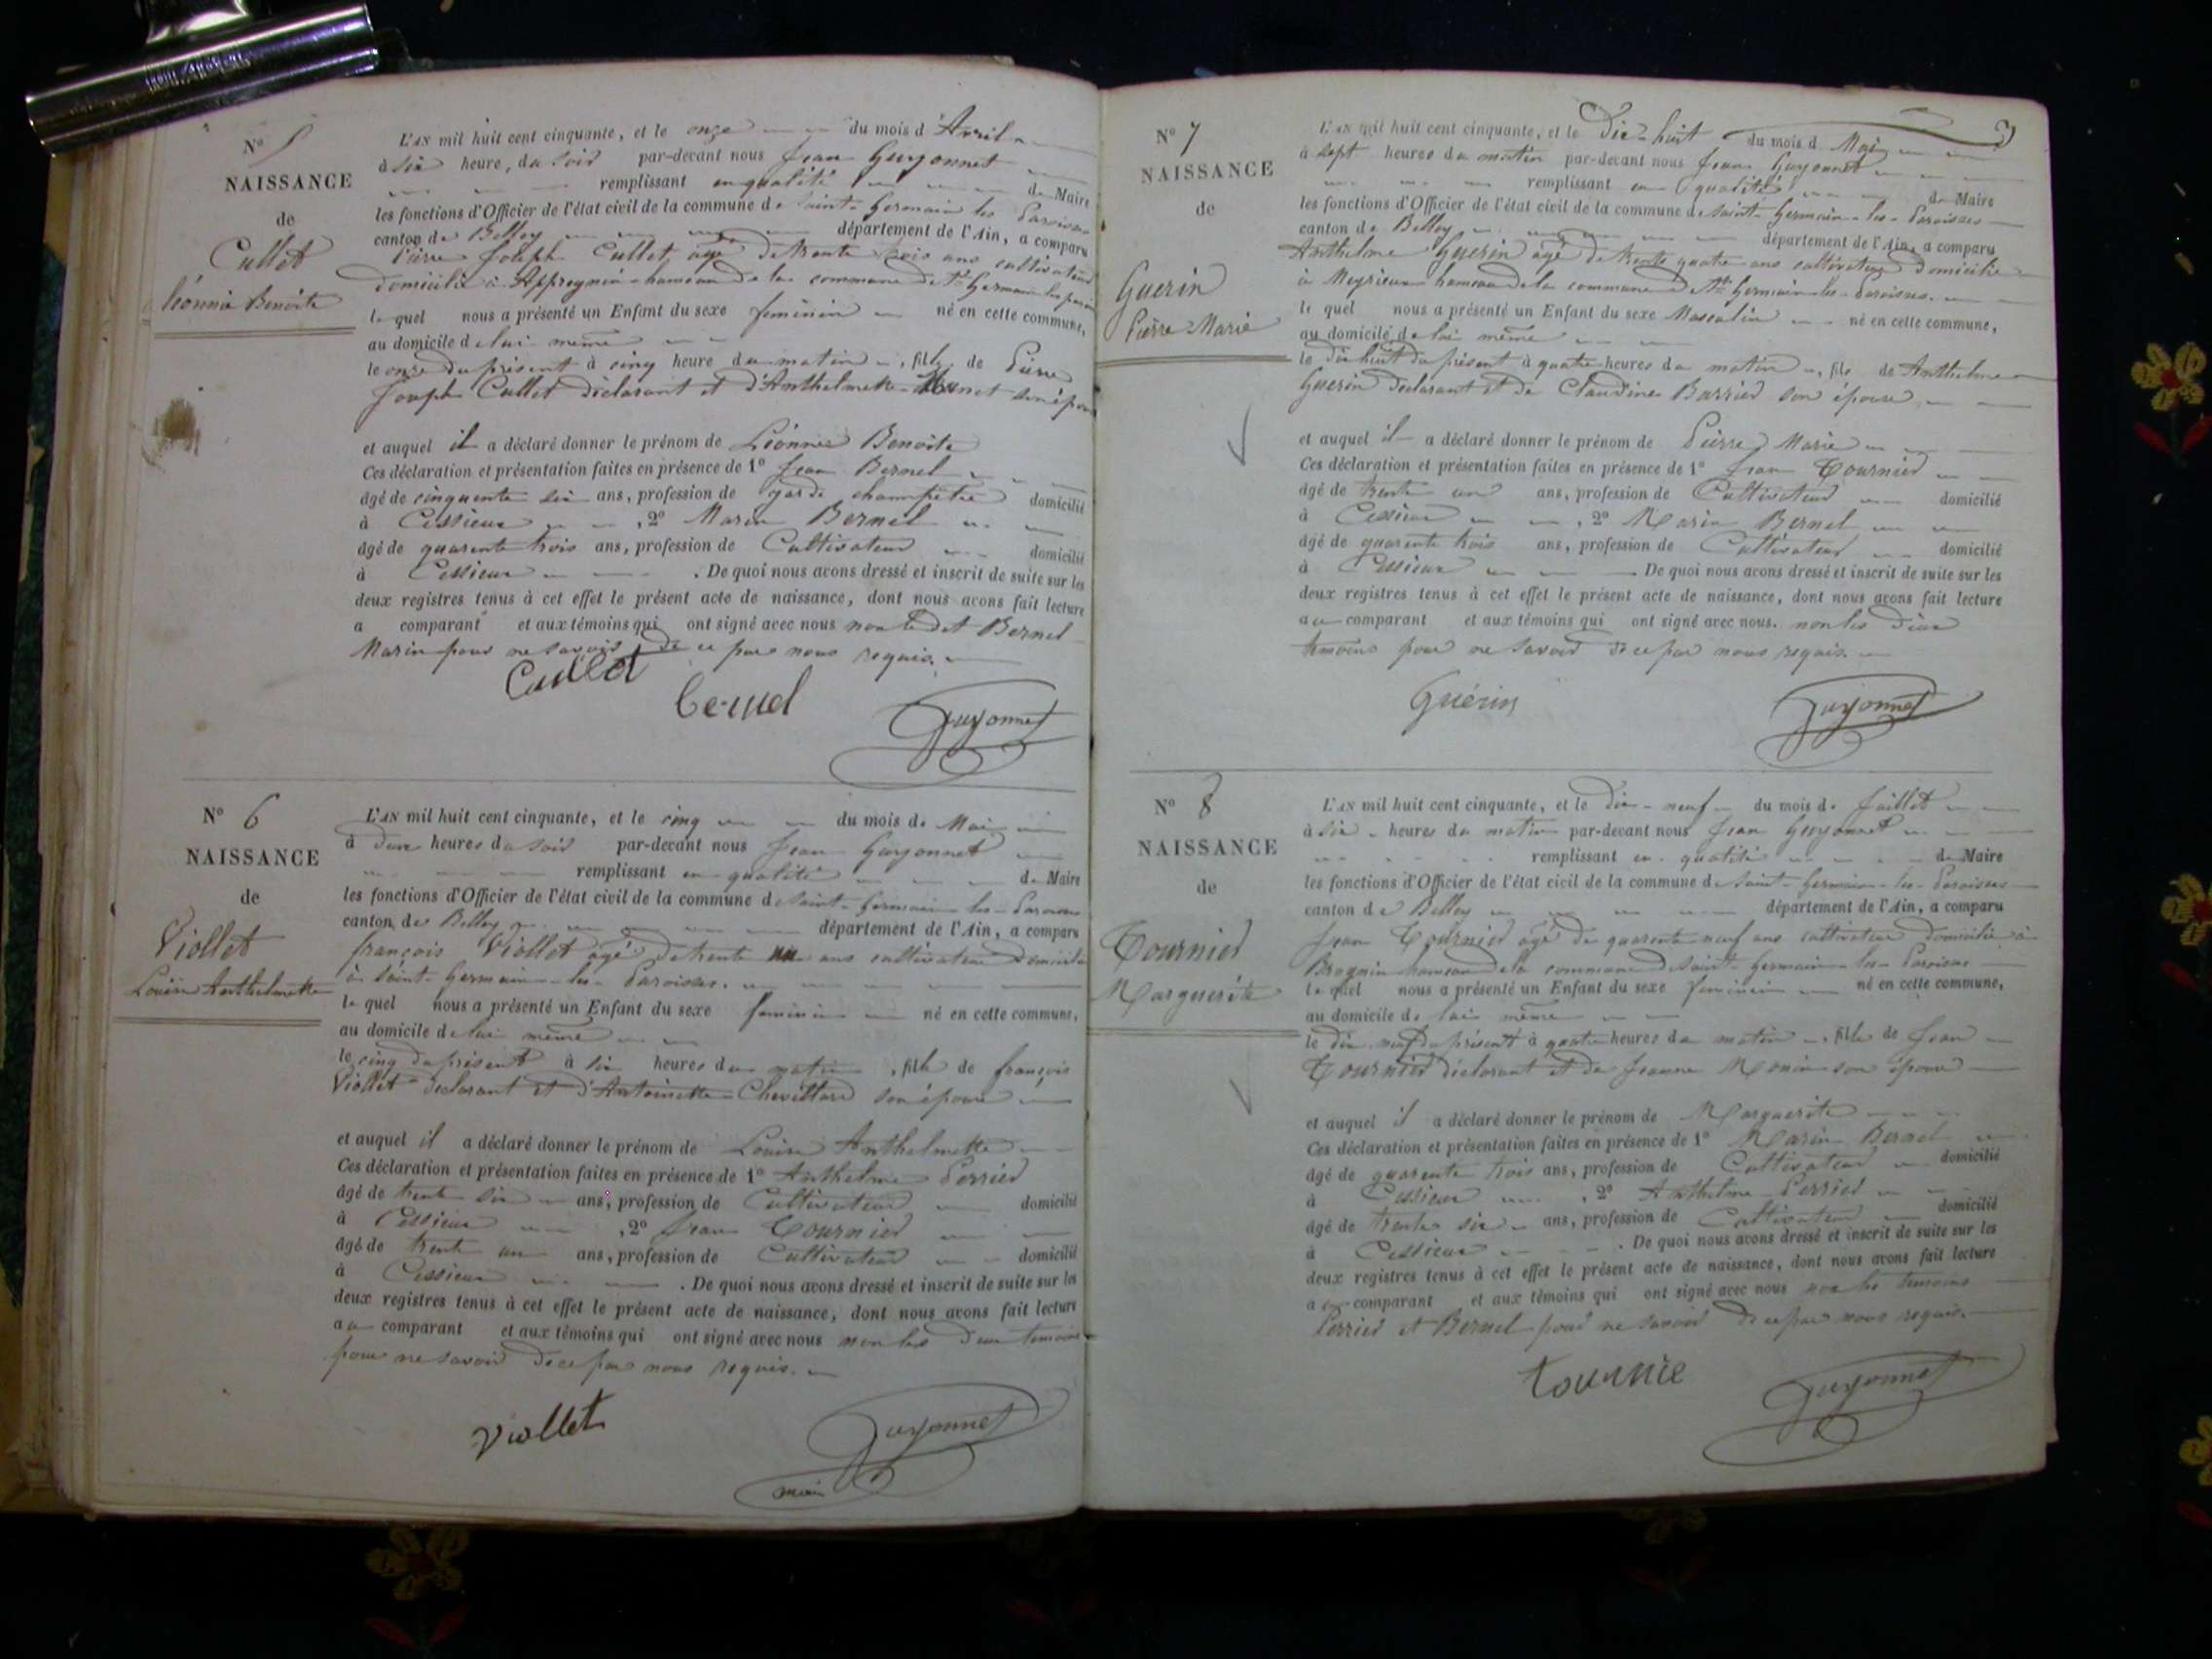 N° 5
NAISSANCE
de
Cullet
Léonnie Benoite
L'AN mil huit cent cinquante, et le onze du mois d'Avril
à six heure, du soir par-devant nous Jean Guyonnet
remplissant en qualité de Maire
les fonctions d'Officier de l'état civil de la commune de Saint-Germain les Paroisses
canton de Belley département de l'Ain, a comparu
Pierre Joseph Cullet, agé de trente trois ans cultivateur
domicilié à Appregnin hameau de la commune de St Germain les paroisses
lequel nous a présenté un Enfant du sexe feminin né en cette commune,
au domicile de lui même
le onze du présent à cinq heure du matin, fille de Pierre
Joseph Cullet déclarant et d'Anthelmette son épouse
et auquel il a déclaré donner le prénom de Léonnie Benoite
Ces déclaration et présentation faites en présence de 1° Jean Bernel
âgé de cinquente six ans, profession de garde champêtre domicilié
à Cessieux, 2° Marin Bernel
âgé de quarente trois ans, profession de Cultivateur domicilié
à Cessieux. De quoi nous avons dressé et inscrit de suite sur les
deux registres tenus à cet effet le présent acte de naissance, dont nous avons fait lecture
a comparant et aux témoins qui ont signé avec nous non ledit Bernel
Marin pour ne savoir de ce par nous requis.
Cullet
bernel
Guyonnet
N° 6
NAISSANCE
de
Viollet
Louise Anthelmette
L'AN mil huit cent cinquante, et le cinq du mois de Mai
à deux heures du soir par-devant nous Jean Guyonnet
remplissant en qualité de Maire
les fonctions d'Officier de l'état civil de la commune de Saint-Germain-les-Paroisses
canton de Belley département de l'Ain, a comparu
françois Viollet agé de trente ans cultivateur domicilié
à Saint-Germain-les-Paroisses.
lequel nous a présenté un Enfant du sexe feminin né en cette commune,
au domicile de lui même
le cinq du présent à six heures du matin, fille de françois
Viollet déclarant et d'Antoinette son épouse
et auquel il a déclaré donner le prénom de Louise Anthelmette
Ces déclaration et présentation faites en présence de 1° Anthelme Perrier
âgé de trente six ans, profession de Cultivateur domicilié
à Cessieux, 2° Jean Tournier
âgé de trente un ans, profession de Cultivateur domicilié
à Cessieux. De quoi nous avons dressé et inscrit de suite sur les
deux registres tenus à cet effet le présent acte de naissance, dont nous avons fait lecture
au comparant et aux témoins qui ont signé avec nous non les deux temoins
pour ne savoir de ce par nous requis.
Viollet
Guyonnet
maire
N° 7
NAISSANCE
de
Guerin
Pierre Marie
L'AN mil huit cent cinquante, et le Dix-huit du mois de Mai
à sept heures du matin par-devant nous Jean Guyonnet
remplissant en qualité de Maire
les fonctions d'Officier de l'état civil de la commune de Saint-Germain-les-Paroisses
canton de Belley département de l'Ain, a comparu
Anthelme Guerin agé de trente quatre ans cultivateur domicilié
à Meyrieux hameau de la commune de St Germain-les-Paroisses.
lequel nous a présenté un Enfant du sexe Masculin né en cette commune,
au domicile de lui même
le dix huit du présent à quatre heures du matin, fils de Anthelme
Guerin déclarant et de Claudine Barrier son épouse
et auquel il a déclaré donner le prénom de Pierre Marie
Ces déclaration et présentation faites en présence de 1° Jean Tournier
âgé de trente un ans, profession de Cultivateur domicilié
à Cessieux, 2° Marin Bernel
âgé de quarente trois ans, profession de Cultivateur domicilié
à Cessieux. De quoi nous avons dressé et inscrit de suite sur les
deux registres tenus à cet effet le présent acte de naissance, dont nous avons fait lecture
au comparant et aux témoins qui ont signé avec nous. non les deux
temoins pour ne savoir de ce par nous requis.
Guérin
Guyonnet
N° 8
NAISSANCE
de
Tournier
Marguerite
L'AN mil huit cent cinquante, et le dix-neuf du mois de Juillet
à six heures du matin par-devant nous Jean Guyonnet
remplissant en qualité de Maire
les fonctions d'Officier de l'état civil de la commune de Saint-Germain-les-Paroisses
canton de Belley département de l'Ain, a comparu
Jean Tournier agé de quarente neuf ans cultivateur domicilié à
Brognin hameau de la commune de Saint-Germain-les-Paroisses
lequel nous a présenté un Enfant du sexe feminin né en cette commune,
au domicile de lui même
le dix neuf du présent à quatre heures du matin, fille de Jean
Tournier déclarant et de Jeanne Monin son épouse
et auquel il a déclaré donner le prénom de Marguerite
Ces déclaration et présentation faites en présence de 1° Marin Bernel
âgé de quarente trois ans, profession de Cultivateur domicilié
à Cessieux, 2° Anthelme Perrier
âgé de trente six ans, profession de Cultivateur domicilié
à Cessieux. De quoi nous avons dressé et inscrit de suite sur les
deux registres tenus à cet effet le présent acte de naissance, dont nous avons fait lecture
au comparant et aux témoins qui ont signé avec nous non les temoins
Perrier et Bernel pour ne savoir de ce par nous requis.
tournie
Guyonnet